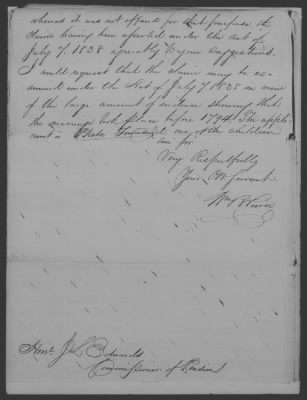 whereas it was not offered for that purpose, the
claim having been asserted under the act of
July 7. 1838
I would request that the claim may be ex-
amined under the Act of July 7 1838 in view
of the large amount of evidence shewing that
the marriage took place before 1794. The appli-
cant is one of the children
Very Respectfully
Your Obt Servant
Hon J L Edwards
Commissioner of Pensions